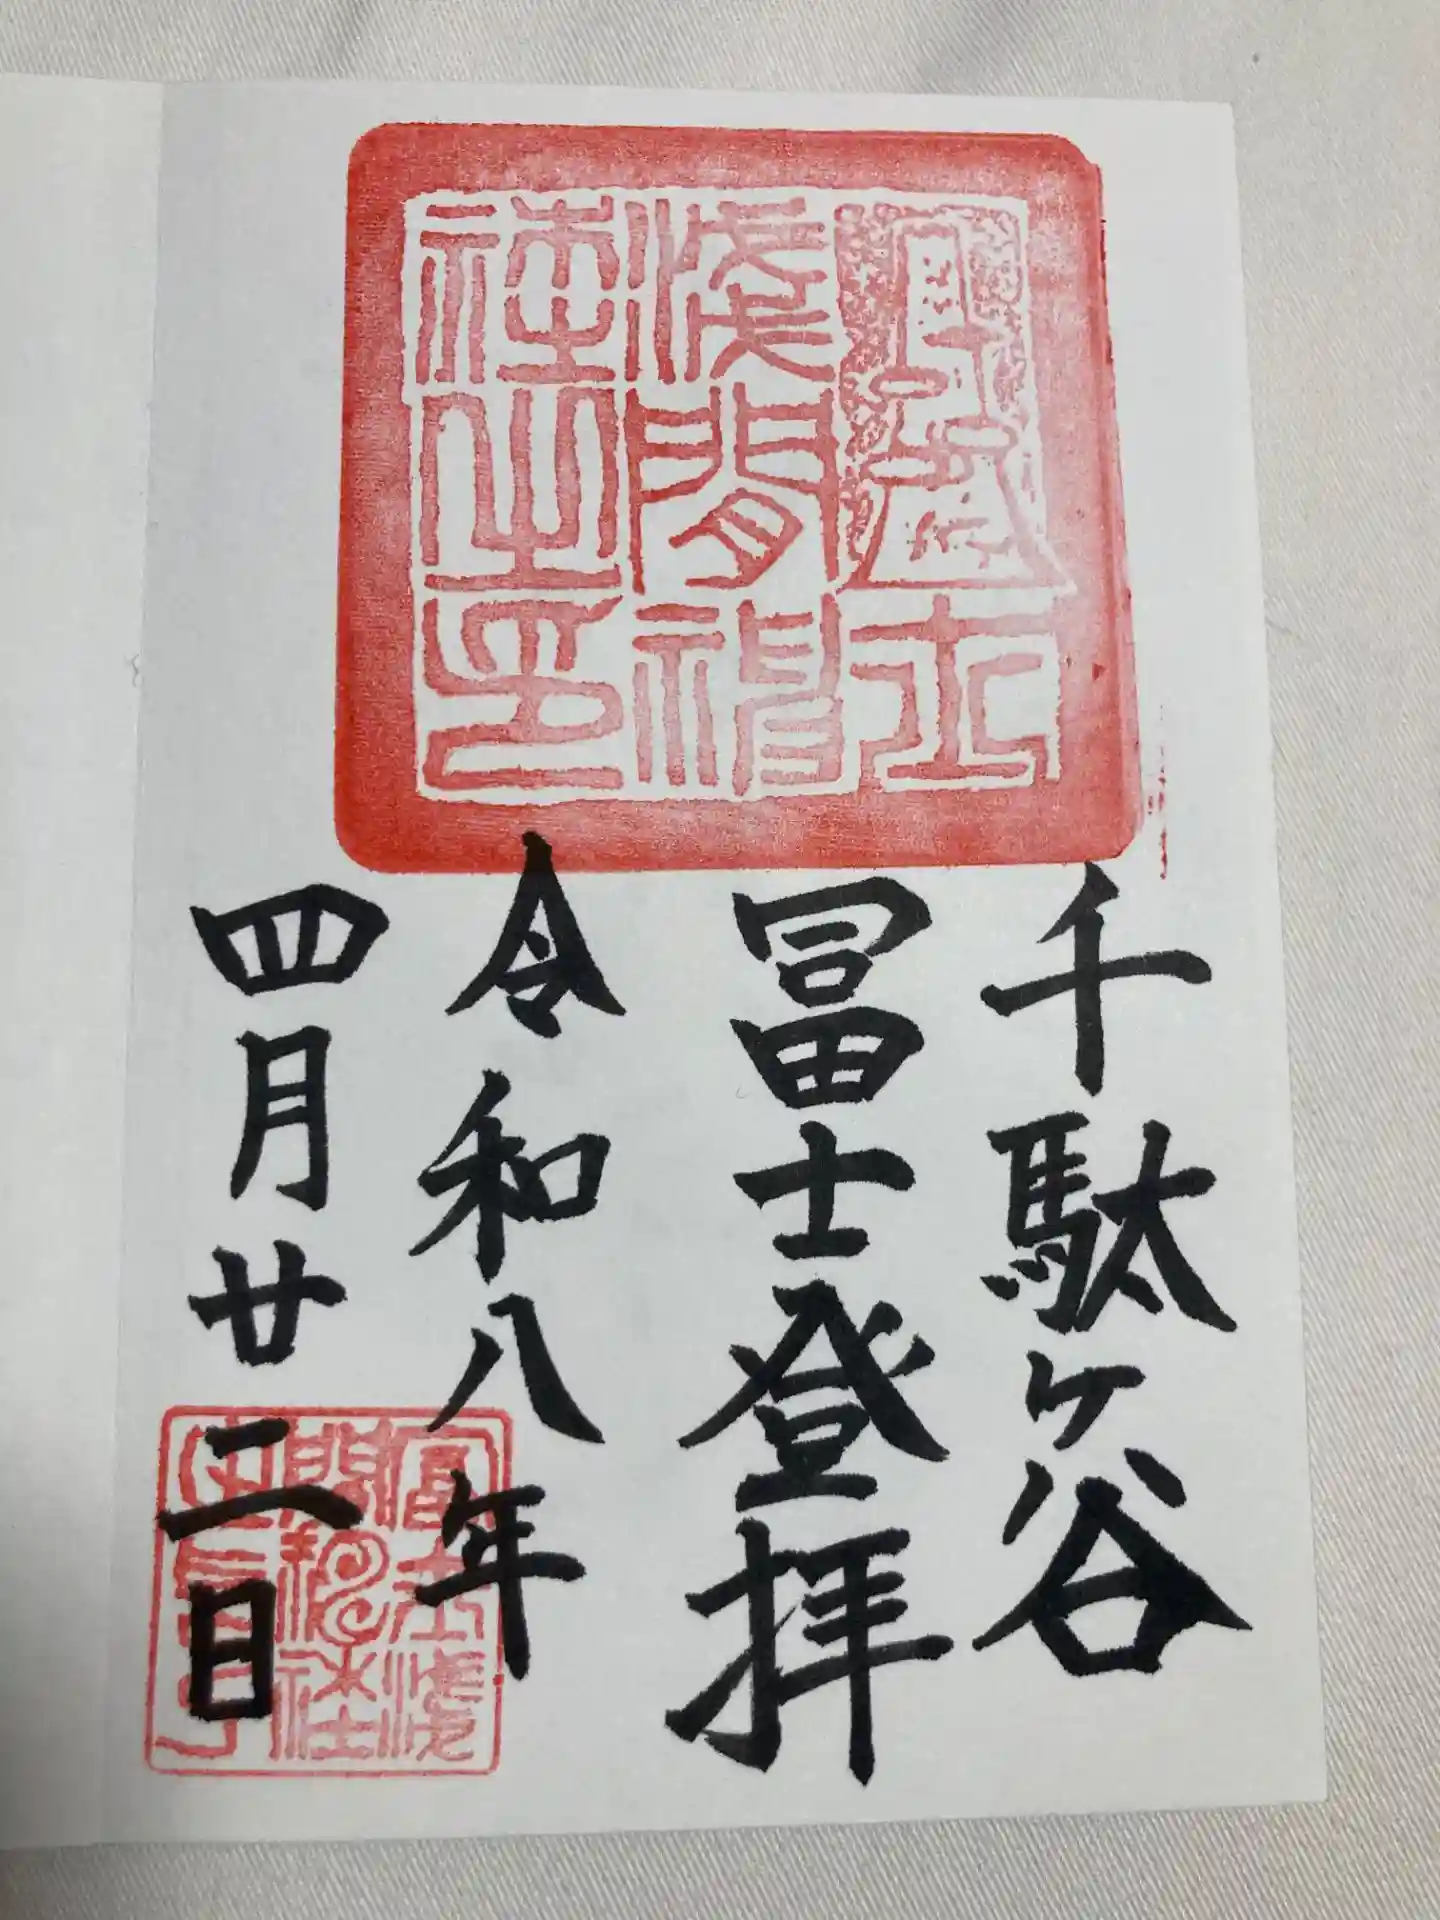 冨士
淺間神
社之印
千駄ヶ谷
冨士登拝
令和八年
四月廿二日
富士淺
間神社